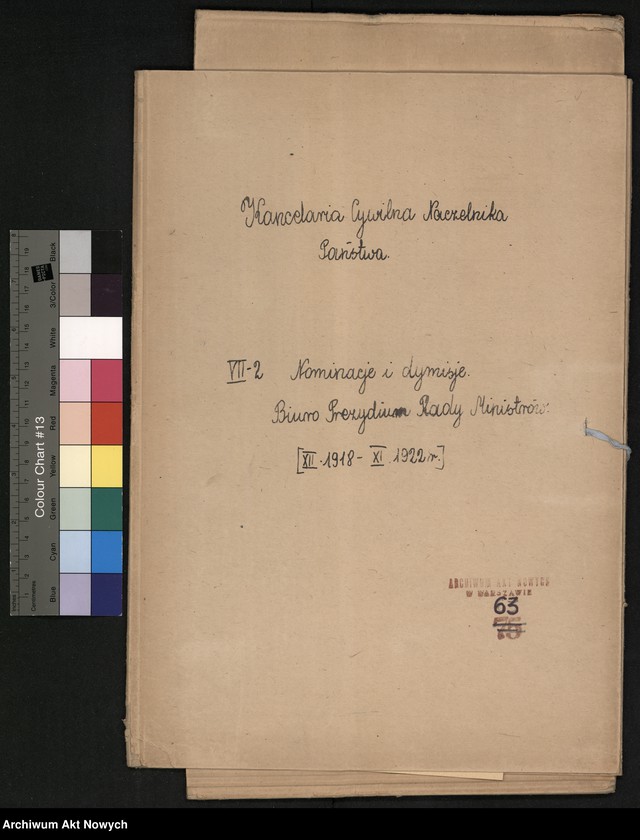 Kancelaria Cywilna Naczelnika
Państwa.
VII-2 Nominacje i dymisje.
Biuro Prezydium Rady Ministrów.
[XII.1918 - XI.1922 r.]
ARCHIWUM AKT NOWYCH
W WARSZAWIE
63
Colour Chart #13
Blue
Cyan
Green
Yellow
Red
Magenta
White
3/Color
Black
Inches
Centimetres
Archiwum Akt Nowych